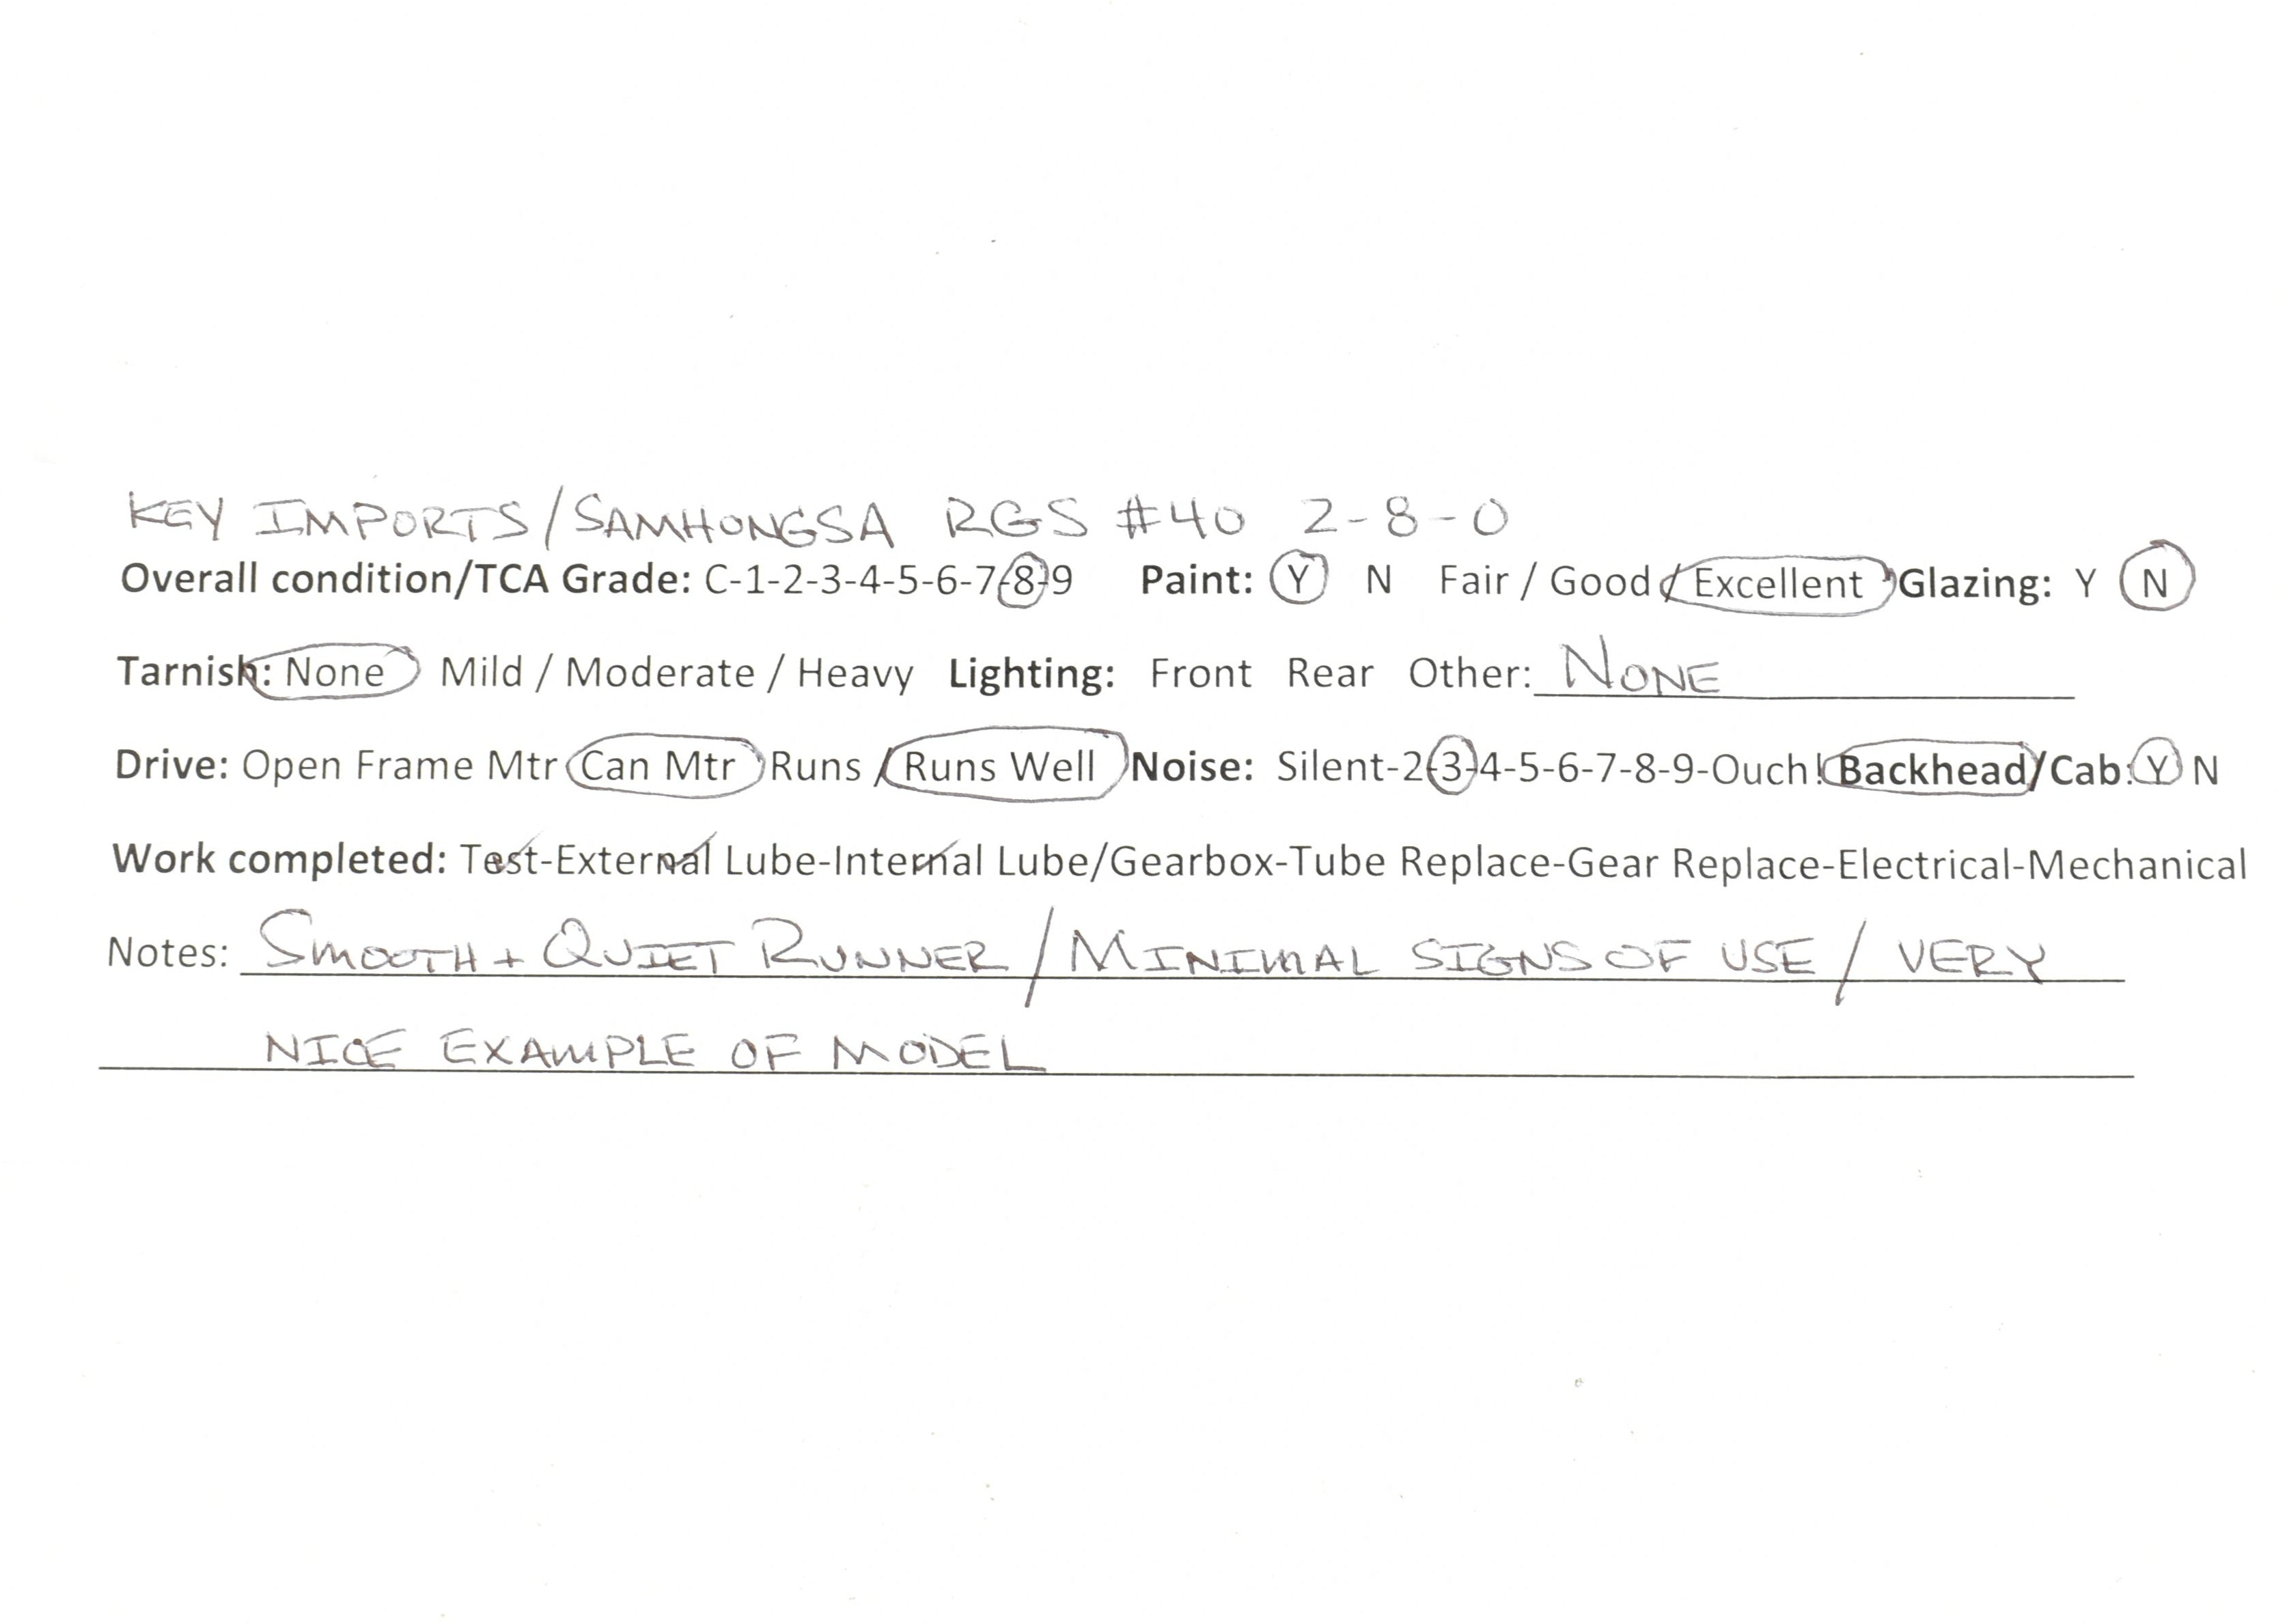 KEY IMPORTS/SAMHONGSA RGS #40 2-8-0
Overall condition/TCA Grade: C-1-2-3-4-5-6-7-8-9 Paint: Y N Fair / Good / Excellent Glazing: Y N
Tarnish: None Mild / Moderate / Heavy Lighting: Front Rear Other: NONE
Drive: Open Frame Mtr Can Mtr Runs / Runs Well Noise: Silent-2-3-4-5-6-7-8-9-Ouch! Backhead/Cab: Y N
Work completed: Test-External Lube-Internal Lube/Gearbox-Tube Replace-Gear Replace-Electrical-Mechanical
Notes: SMOOTH + QUIET RUNNER / MINIMAL SIGNS OF USE / VERY
NICE EXAMPLE OF MODEL